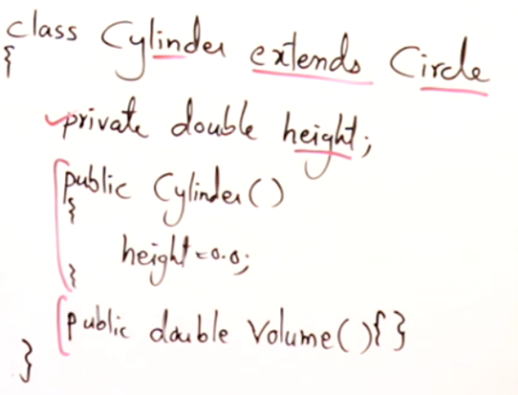 class Cylinder extends Circle
{
private double height;
public Cylinder()
{
height=0.0;
}
public double Volume(){}
}